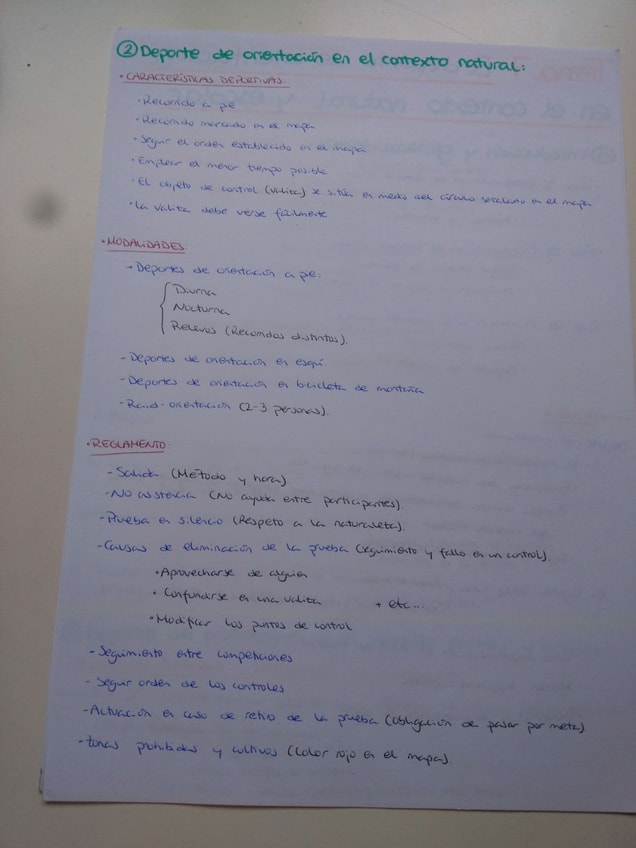 ② Deporte de orientación en el contexto natural:
• CARACTERÍSTICAS DEPORTIVAS:
• Recorrido a pie
• Recorrido marcado en el mapa
• Seguir el orden establecido en el mapa
• Emplear el menor tiempo posible
• El objeto de control (valita) se sitúa en medio del círculo señalado en el mapa
• La valita debe verse fácilmente
• MODALIDADES:
- Deportes de orientación a pie:
Diurna
Nocturna
Relevos (Recorridos distintos).
- Deportes de orientación en esquí.
- Deportes de orientación en bicicleta de montaña
- Raid-orientación (2-3 personas).
• REGLAMENTO:
- Salida (Método y hora).
- No asistencia (No ayuda entre participantes).
- Prueba en silencio (Respeto a la naturaleza).
- Causas de eliminación de la prueba (seguimiento y fallo en un control).
• Aprovecharse de alguien
• Confundirse en una valita + etc...
• Modificar los puntos de control
- Seguimiento entre competidores
- Seguir orden de los controles
- Actuación en caso de retiro de la prueba (obligación de pasar por meta).
- Zonas prohibidas y cultivos (Color rojo en el mapa).